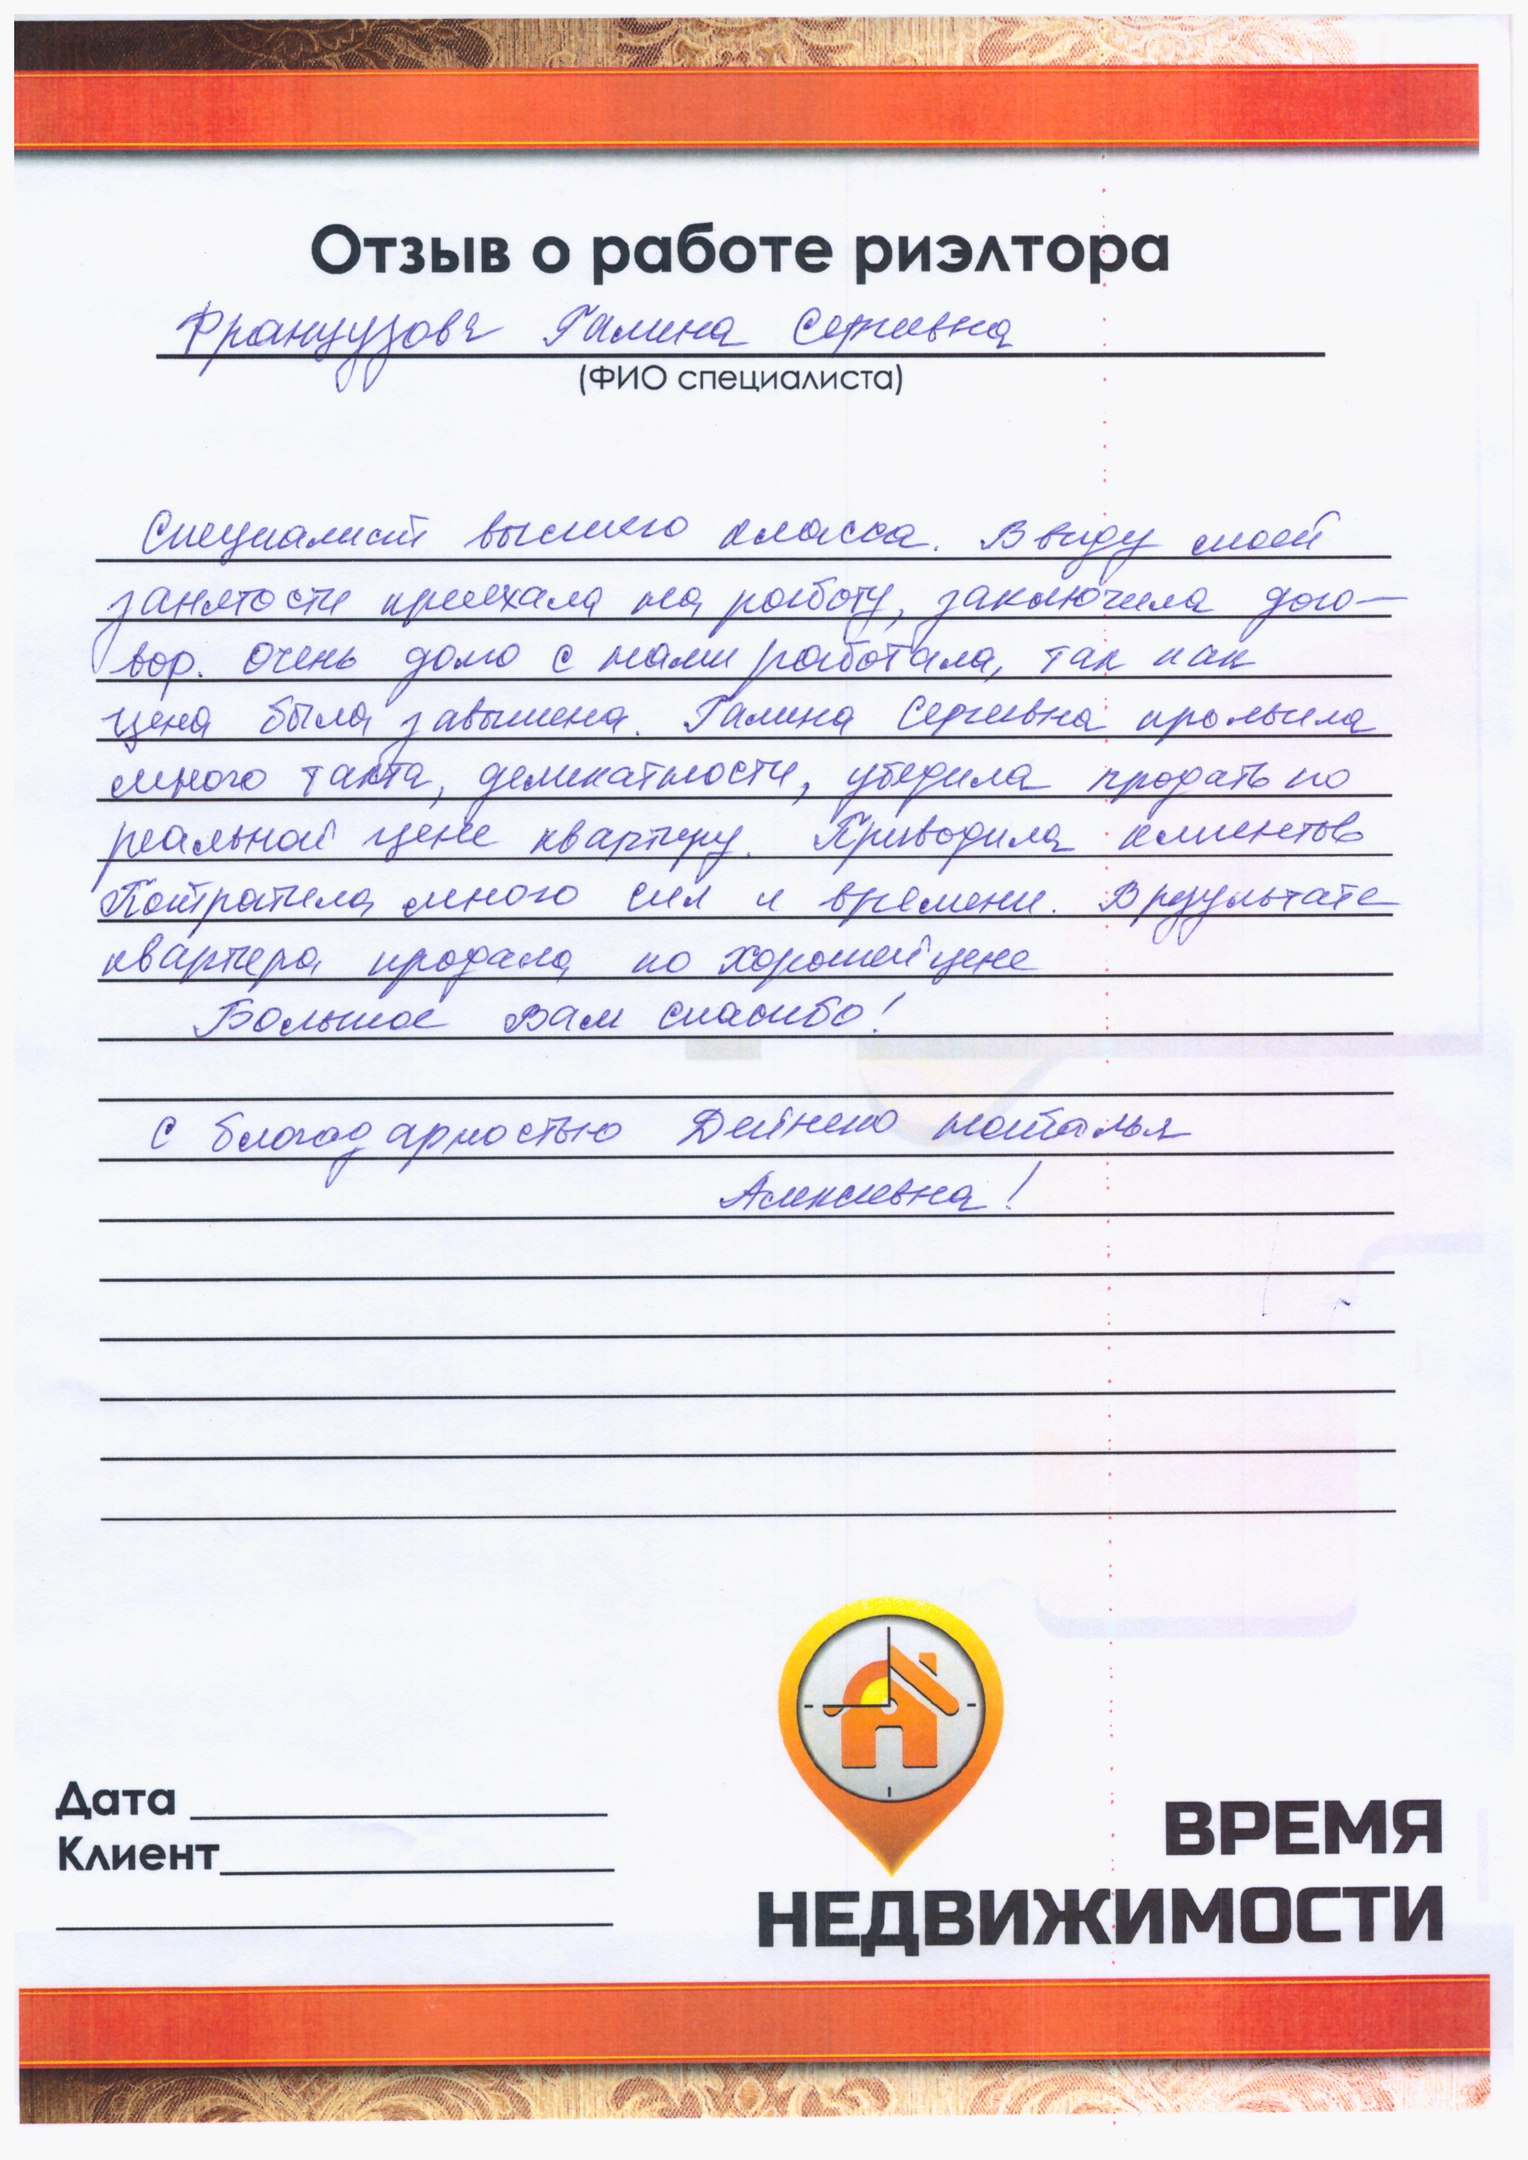 Отзыв о работе риэлтора
Французова Галина Сергеевна
(ФИО специалиста)
Специалист высшего класса. Ввиду моей
занятости приехала на работу, заключила дого-
вор. Очень долго с нами работала, так как
цена была завышена. Галина Сергеевна проявила
много такта, деликатности, убедила продать по
реальной цене квартиру. Приводила клиентов
Потратила много сил и времени. В результате
квартира продала по хорошей цене
Большое Вам спасибо!
С благодарностью Дейнеко Наталья
Алексеевна!
Дата
Клиент
ВРЕМЯ
НЕДВИЖИМОСТИ